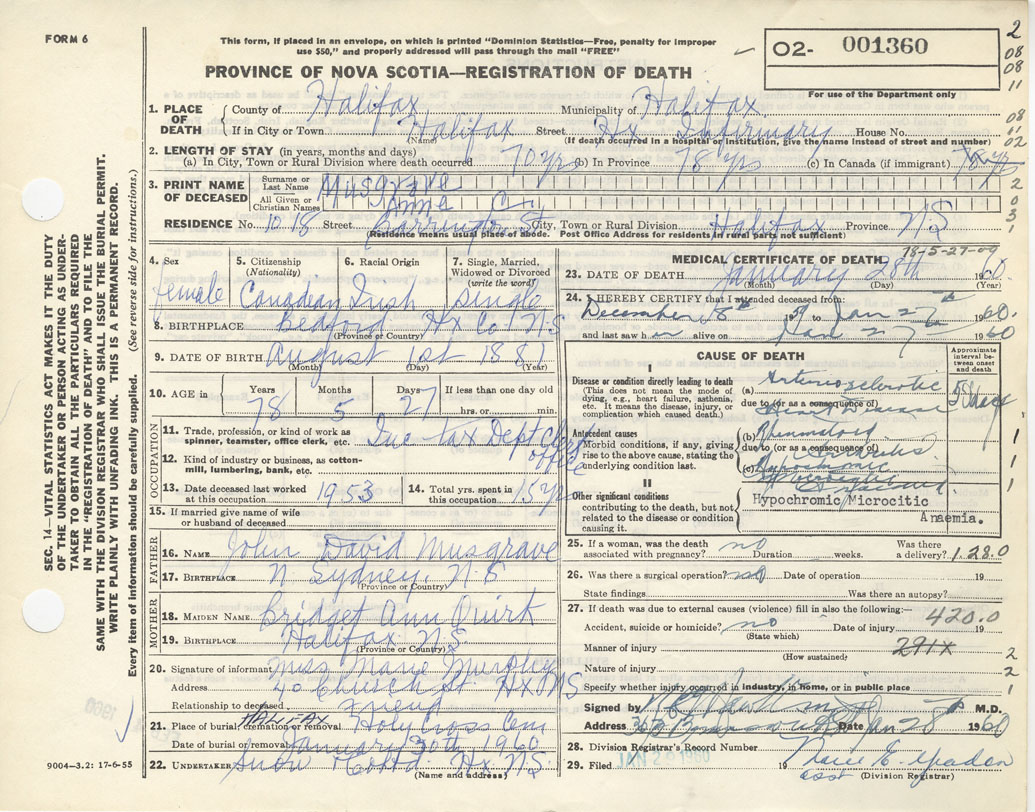 FORM 6
This form, if placed in an envelope, on which is printed "Dominion Statistics—Free, penalty for improper
use $50," and properly addressed will pass through the mail "FREE"
O2- 001360
For use of the Department only
PROVINCE OF NOVA SCOTIA—REGISTRATION OF DEATH
2
08
08
11
08
11
02
2
0
3
1
SEC. 14—VITAL STATISTICS ACT MAKES IT THE DUTY
OF THE UNDERTAKER OR PERSON ACTING AS UNDER-
TAKER TO OBTAIN ALL THE PARTICULARS REQUIRED
IN THE "REGISTRATION OF DEATH" AND TO FILE THE
SAME WITH THE DIVISION REGISTRAR WHO SHALL ISSUE THE BURIAL PERMIT.
WRITE PLAINLY WITH UNFADING INK. THIS IS A PERMANENT RECORD.
Every item of information should be carefully supplied. (See reverse side for instructions.)
1. PLACE OF DEATH County of Halifax Municipality of Halifax
If in City or Town Halifax Street Hx Infirmary House No.
(Name) (If death occurred in a hospital or institution, give the name instead of street and number)
2. LENGTH OF STAY (in years, months and days)
(a) In City, Town or Rural Division where death occurred 70 yrs (b) In Province 78 yrs (c) In Canada (if immigrant)
3. PRINT NAME OF DECEASED Surname or Last Name Musgrave
All Given or Christian Names Anne C.
RESIDENCE No. 1018 Street Barrington St City, Town or Rural Division Halifax Province N.S
(Residence means usual place of abode. Post Office Address for residents in rural parts not sufficient)
4. Sex female
5. Citizenship (Nationality) Canadian
6. Racial Origin Irish
7. Single, Married, Widowed or Divorced (write the word) Single
8. BIRTHPLACE Bedford Hx Co N.S
(Province or Country)
9. DATE OF BIRTH August 1st 1881
(Month) (Day) (Year)
10. AGE in Years 78 Months 5 Days 27 If less than one day old hrs. or min.
OCCUPATION
11. Trade, profession, or kind of work as spinner, teamster, office clerk, etc. Inc tax Dept Clerk
12. Kind of industry or business, as cotton-mill, lumbering, bank, etc. office
13. Date deceased last worked at this occupation 1953
14. Total yrs. spent in this occupation 15 yrs
15. If married give name of wife or husband of deceased
FATHER
16. NAME John David Musgrave
17. BIRTHPLACE N Sydney, N.S
(Province or Country)
MOTHER
18. MAIDEN NAME Bridget Ann Quirk
19. BIRTHPLACE Halifax N.S
(Province or Country)
20. Signature of informant Miss Marie
Address 40 Church St Hx NS
Relationship to deceased friend
21. Place of burial, cremation or removal HALIFAX Holy Cross Cem
Date of burial or removal January 30th 1960
22. UNDERTAKER Snow & Co Ltd. Hx N.S
(Name and address)
9004—3.2: 17-6-55
MEDICAL CERTIFICATE OF DEATH
78-5-27-09
23. DATE OF DEATH January 28th 1960.
(Month) (Day) (Year)
24. I HEREBY CERTIFY that I attended deceased from:
December 18th 19 to Jan 27th 1960.
and last saw h alive on Jan 27th 1960
CAUSE OF DEATH
Approximate interval between onset and death
I
Disease or condition directly leading to death
(This does not mean the mode of dying, e.g., heart failure, asthenia, etc. It means the disease, injury, or complication which caused death.)
(a) Arteriosclerotic
due to (or as a consequence of)
Heart Disease
Antecedent causes
Morbid conditions, if any, giving rise to the above cause, stating the underlying condition last.
(b) Rheumatoid
due to (or as a consequence of)
Arthritis
(c) Hypochromic
1
1
1
II
Other significant conditions contributing to the death, but not related to the disease or condition causing it.
Hypochromic Microcitic
Anaemia.
25. If a woman, was the death associated with pregnancy? no Duration weeks. Was there a delivery? 128.0
26. Was there a surgical operation? no Date of operation 19
State findings Was there an autopsy?
27. If death was due to external causes (violence) fill in also the following:—
420.0
Accident, suicide or homicide? no Date of injury 19
(State which)
Manner of injury 291X
(How sustained)
Nature of injury
Specify whether injury occurred in industry, in home, or in public place
2
2
1
Signed by M.D.
Address Date Jan 28 1960
28. Division Registrar's Record Number
29. Filed JAN 29 1960 19
asst (Division Registrar)